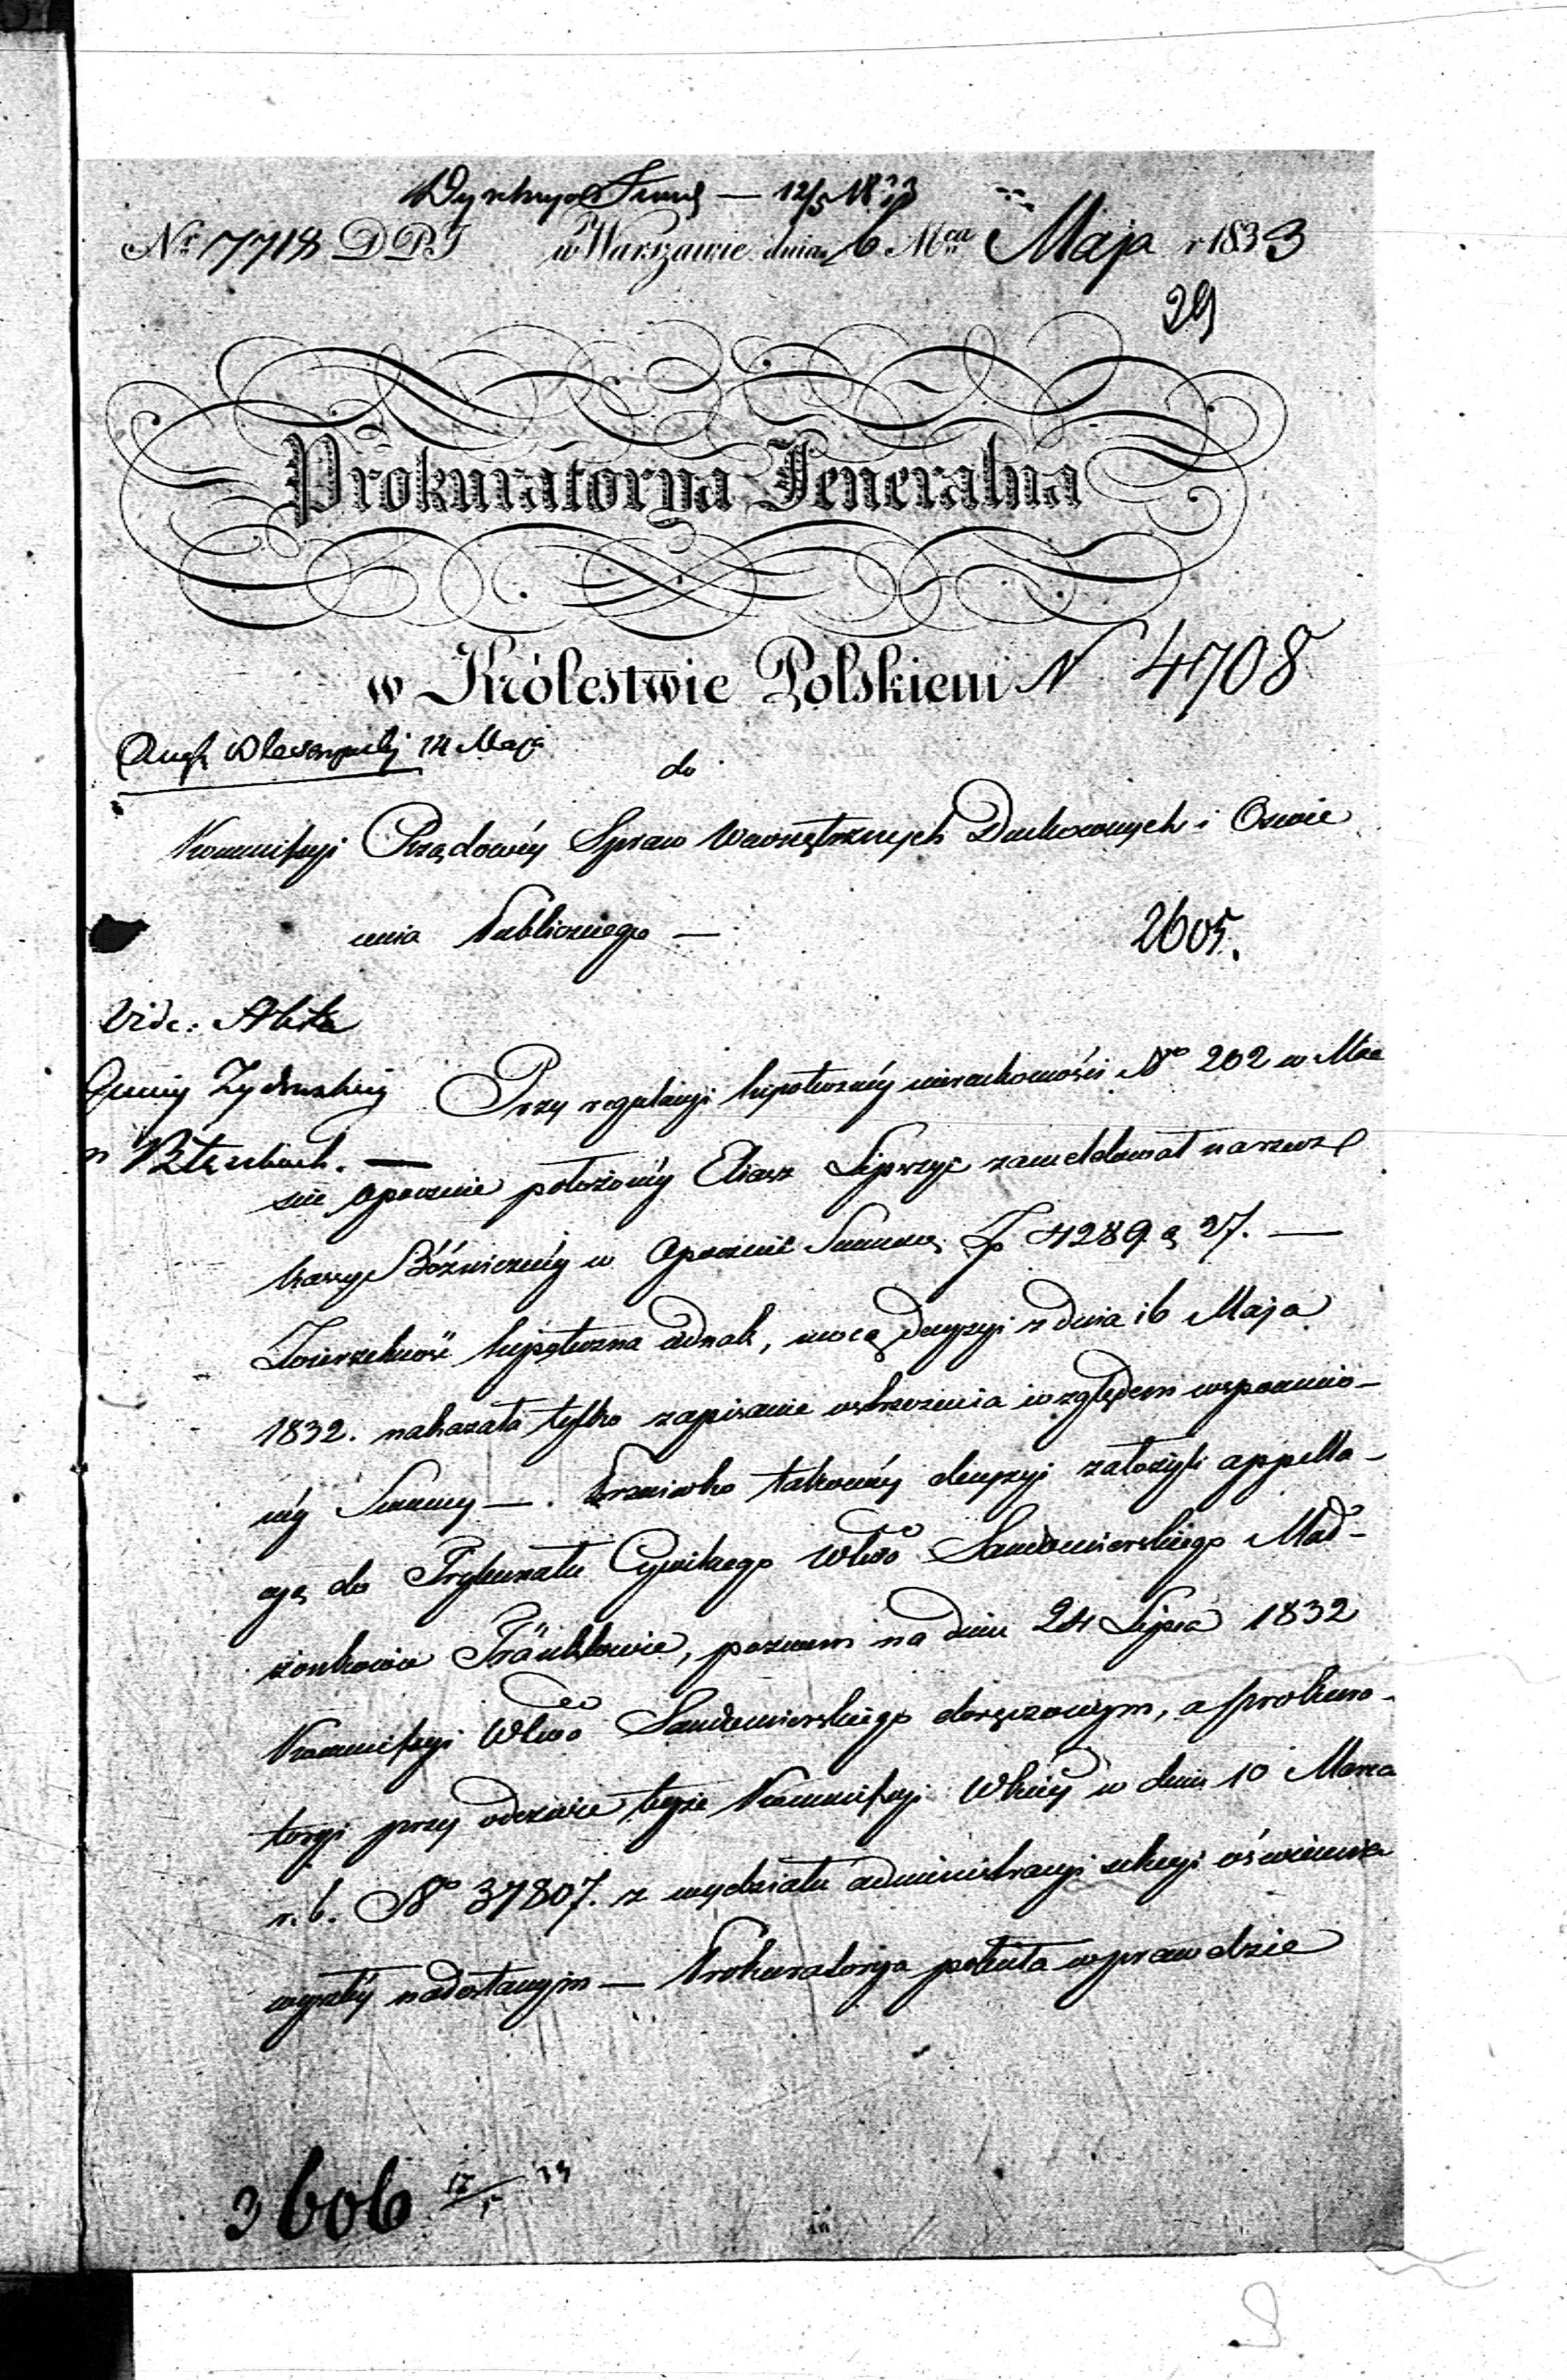 12/5 1833
Nr 7718 D.P.J w Warszawie dnia 6 Mca Maja r 1833
29
Prokuratorya Jeneralna
w Królestwie Polskiem N 4708
14 Maja
do
Kommissyi Rządowéy Spraw Wewnętrznych Duchownych i Oswie
cenia Publicznego —
2605.
Vide: Akta
Gminy Żydowskiey
Przy regulacyi hypoteczney nieruchomości No 202 w Mie
ście Opocznie położonéy Eliasz Lipszyc zameldował na rzecz
kassy Bóżniczney w Opocznie Summę Zp 4289 g 27. —
Zwierzchność hypoteczna jednak, mocą decyzyi z dnia 16 Maja
1832. nakazała tylko zapisanie ostrzeżenia względem wspomnio-
néy Summy —. Przeciwko takowéy decyzyi założyli appella-
cyą do Trybunału Cywilnego Wdztwa Sandomierskiego Mał-
żonkowie Fränklowie, pozwem na dniu 24 Lipca 1832
Kommissyi Wdztwa Sandomierskiego doręczonym, a Prokura-
toryi przy odezwie teyże Kommissyi Wdzkiéy w dniu 10 Marca
r. b. No 37807. z wydziału administracyi sekcyi oświecenia
wyszłéy nadesłanym — Prokuratorya podięła wprawdzie
3606 17/5 33